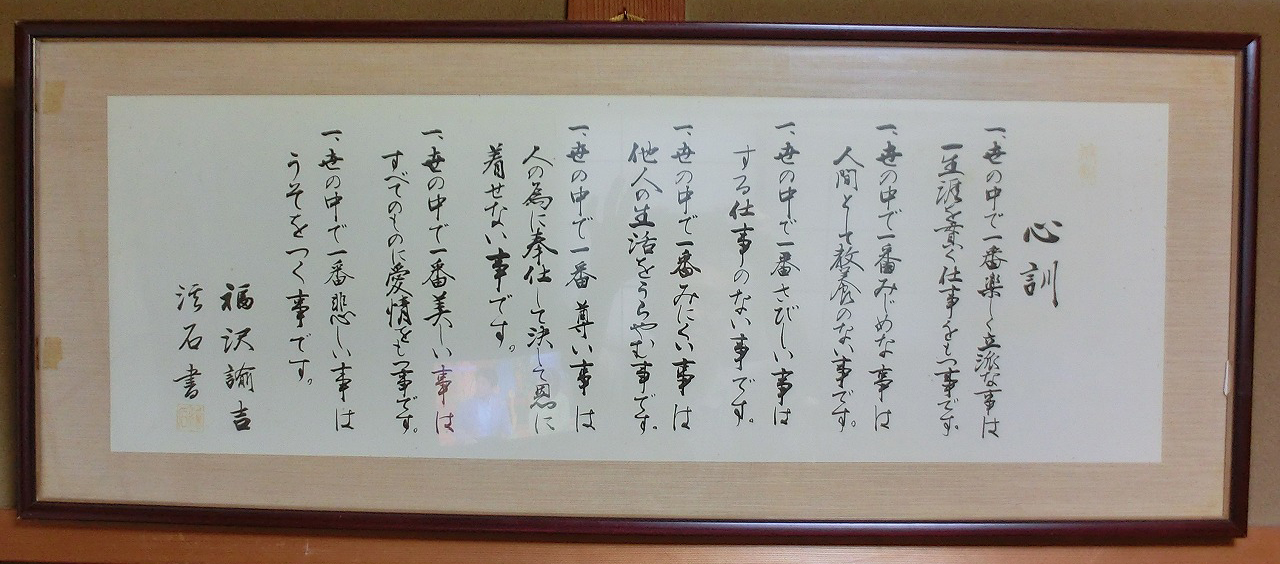 心訓
一、世の中で一番楽しく立派な事は
一生涯を貫く仕事をもつ事です。
一、世の中で一番みじめな事は
人間として教養のない事です。
一、世の中で一番さびしい事は
する仕事のない事です。
一、世の中で一番みにくい事は
他人の生活をうらやむ事です。
一、世の中で一番尊い事は
人の為に奉仕して決して恩に
着せない事です。
一、世の中で一番美しい事は
すべてのものに愛情をもつ事です。
一、世の中で一番悲しい事は
うそをつく事です。
福沢諭吉
石書